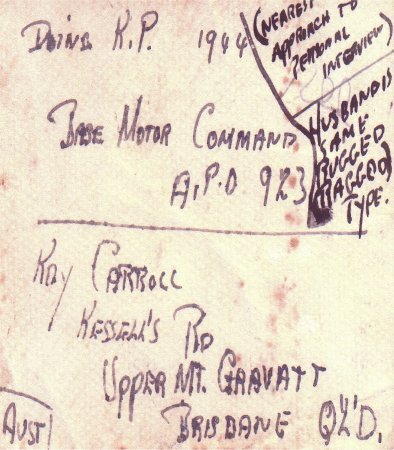 Doing K.P. 1944
(NEAREST
APPROACH TO
PERSONAL
INTERVIEW)
BASE MOTOR COMMAND
A.P.O 923
HUSBAND IS
SAME
RUGGED
(RAGGED)
TYPE.
KAY CARROLL
KESSELL'S RD
UPPER MT. GRAVATT
BRISBANE Q'L'D.
AUST